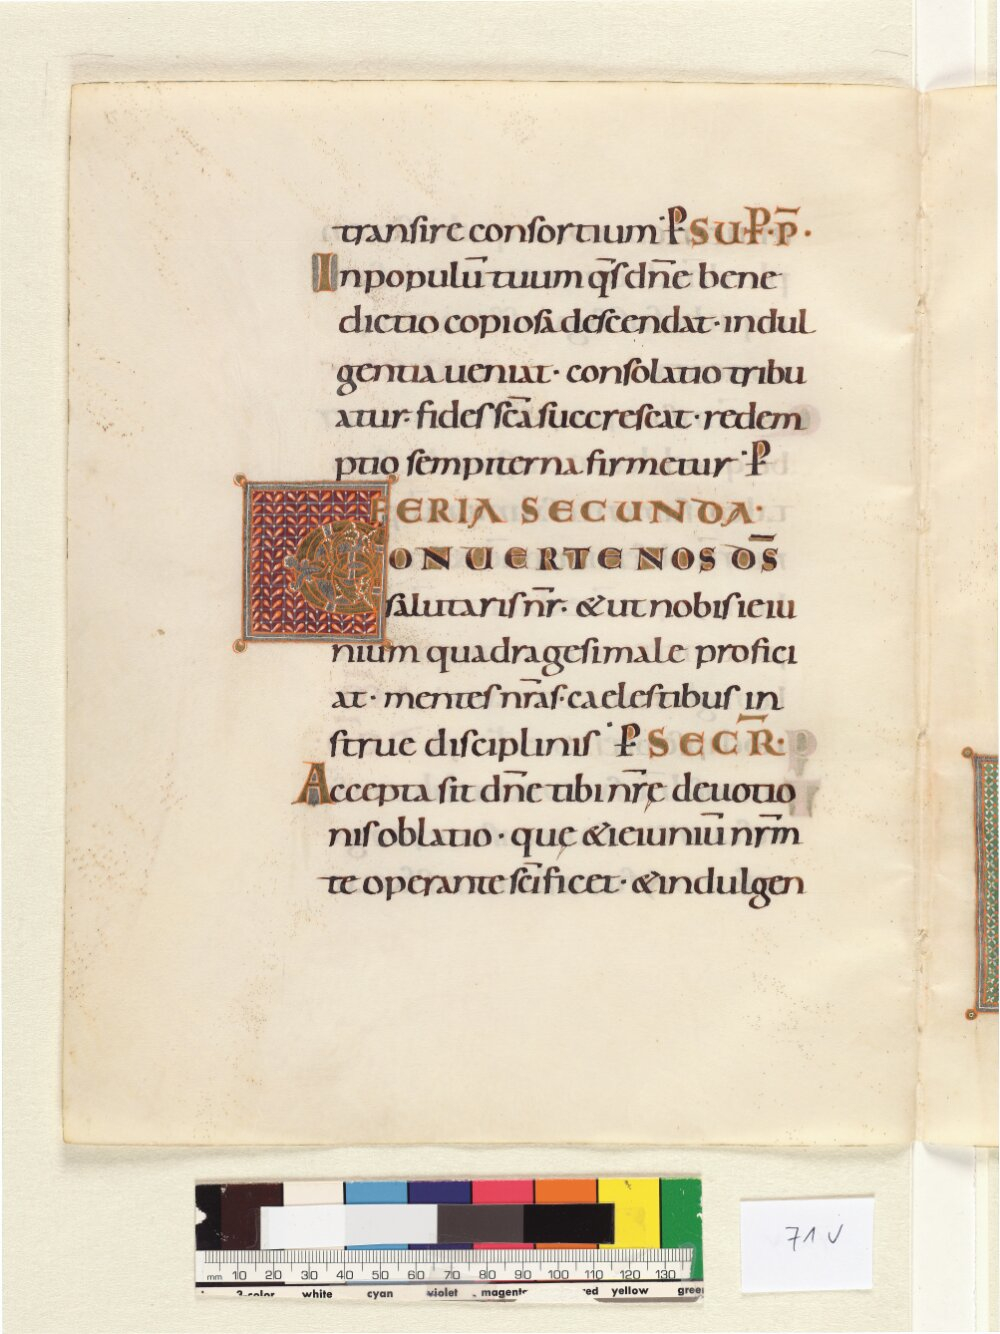 tranſire conſortium· ꝑ SUP·P̄·
In populū tuum qſ̄ dn̄e bene
dictio copioſa deſcendat· indul
gentia ueniat· conſolatio tribu
atur· fideſ ſc̄a ſuccreſcat· redem
ptio ſempiterna firmetur· ꝑ
FERIA SECUNDA·
CONUERTE NOS DS̄
ſalutariſ nr̄· & ut nobiſ ieiu
nium quadrageſimale profici
at· menteſ nr̄aſ· caeleſtibuſ in
ſtrue diſcipliniſ· ꝑ SECR̄·
Accepta ſit dn̄e tibi nr̄ę deuotio
niſ oblatio· quę & ieiuniū nr̄m
te operante ſcīficet· & indulgen
71v
mm 10 20 30 40 50 60 70 80 90 100 110 120 130
3-color white cyan violet magenta red yellow green